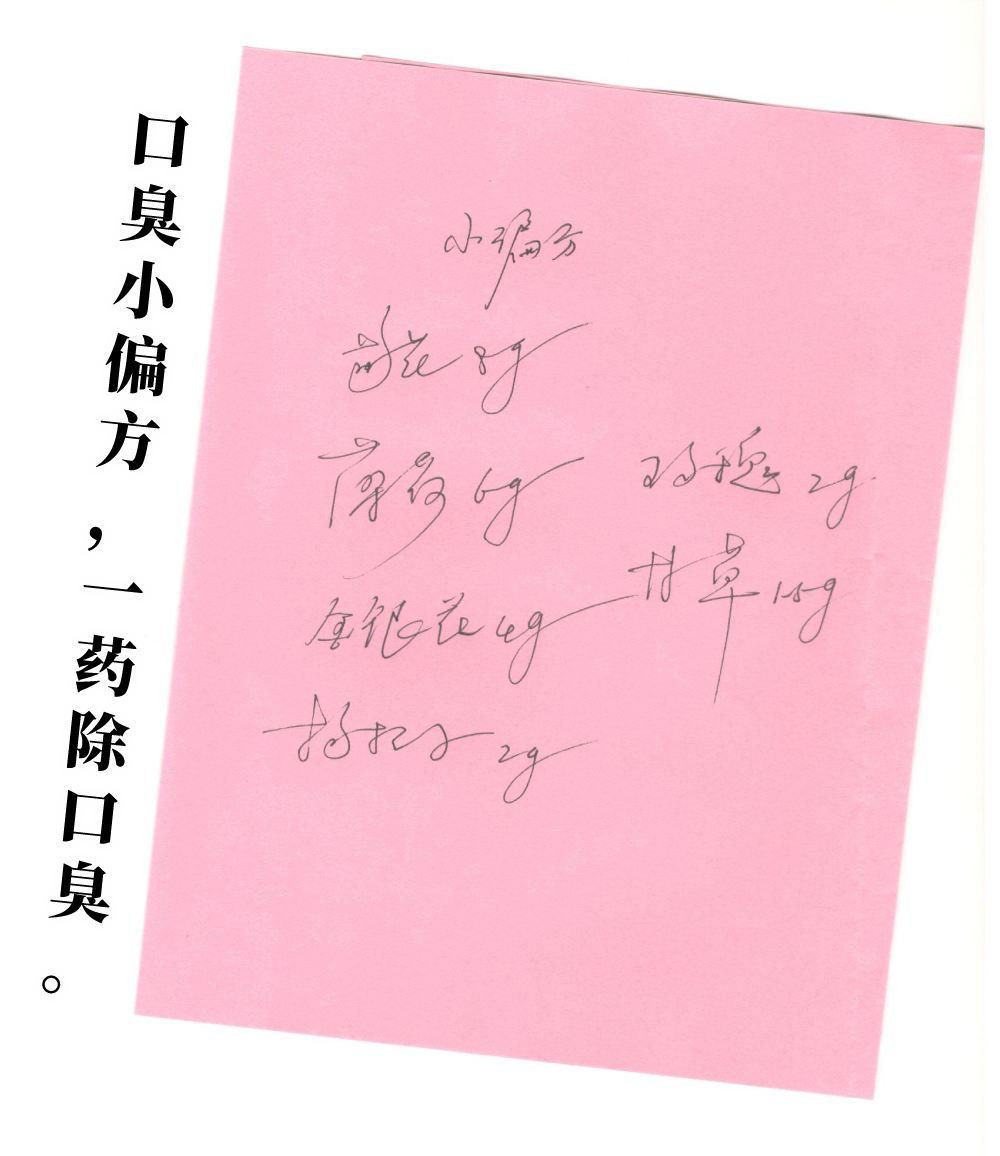 口臭小偏方，一药除口臭。
小偏方
菊花 8g
薄荷 6g
金银花 4g
枸杞子 2g
玫瑰 2g
甘草 1.5g